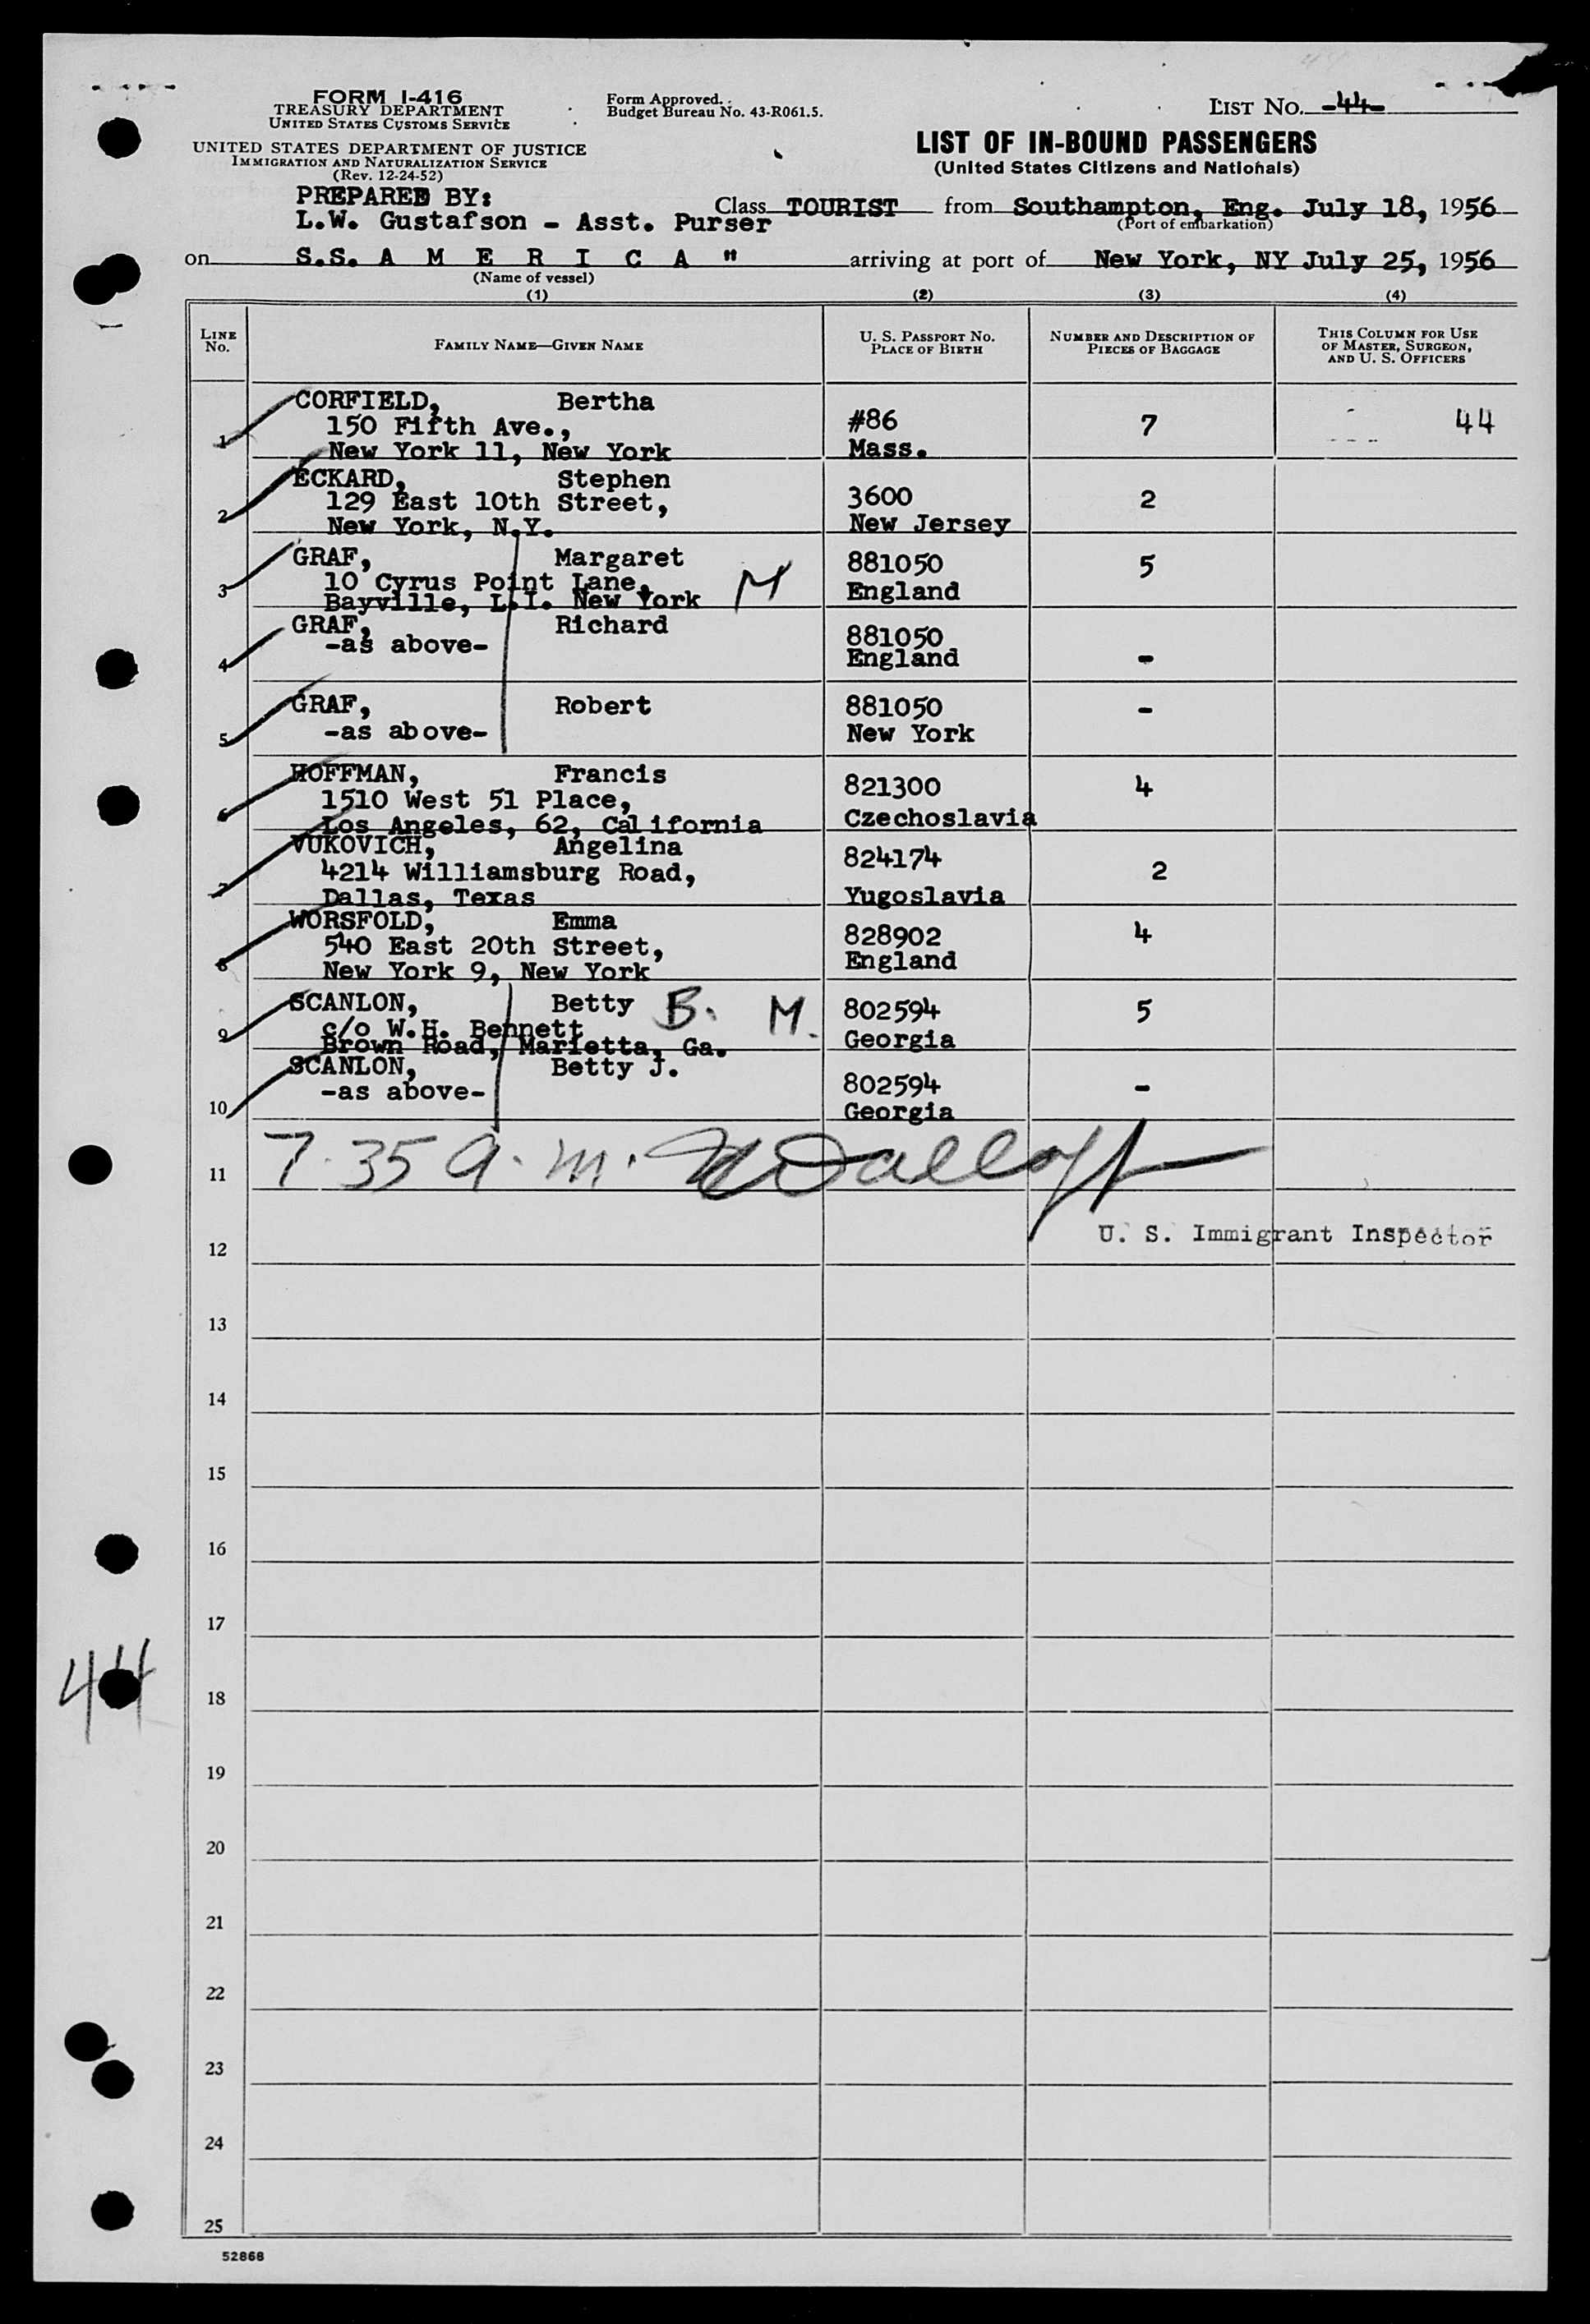 FORM I-416
TREASURY DEPARTMENT
UNITED STATES CUSTOMS SERVICE
UNITED STATES DEPARTMENT OF JUSTICE
IMMIGRATION AND NATURALIZATION SERVICE
(Rev. 12-24-52)
Form Approved.
Budget Bureau No. 43-R061.5.
LIST NO. -44-
LIST OF IN-BOUND PASSENGERS
(United States Citizens and Nationals)
PREPARED BY:
L.W. Gustafson - Asst. Purser
Class TOURIST from Southampton, Eng. July 18, 1956
(Port of embarkation)
on S.S. A M E R I C A " arriving at port of New York, NY July 25, 1956
(Name of vessel)
(1) (2) (3) (4)
LINE NO. FAMILY NAME—GIVEN NAME U. S. PASSPORT NO. PLACE OF BIRTH NUMBER AND DESCRIPTION OF PIECES OF BAGGAGE THIS COLUMN FOR USE OF MASTER, SURGEON, AND U. S. OFFICERS
CORFIELD, Bertha
1 150 Fifth Ave., #86 7 44
New York 11, New York Mass.
ECKARD, Stephen
2 129 East 10th Street, 3600 2
New York, N.Y. New Jersey
GRAF, Margaret 881050 5
3 10 Cyrus Point Lane, M England
Bayville, L.I. New York
GRAF, Richard 881050
4 -as above- England -
GRAF, Robert 881050 -
5 -as above- New York
HOFFMAN, Francis 821300 4
6 1510 West 51 Place, Czechoslavia
Los Angeles, 62, California
VUKOVICH, Angelina 824174
7 4214 Williamsburg Road, 2
Dallas, Texas Yugoslavia
WORSFOLD, Emma 828902 4
8 540 East 20th Street, England
New York 9, New York
SCANLON, Betty B. M. 802594 5
9 c/o W.H. Bennett Georgia
Brown Road, Marietta, Ga.
SCANLON, Betty J. 802594 -
10 -as above- Georgia
11 7.35 a.m.
12 U. S. Immigrant Inspector
13
14
15
16
17
44
18
19
20
21
22
23
24
25
52868